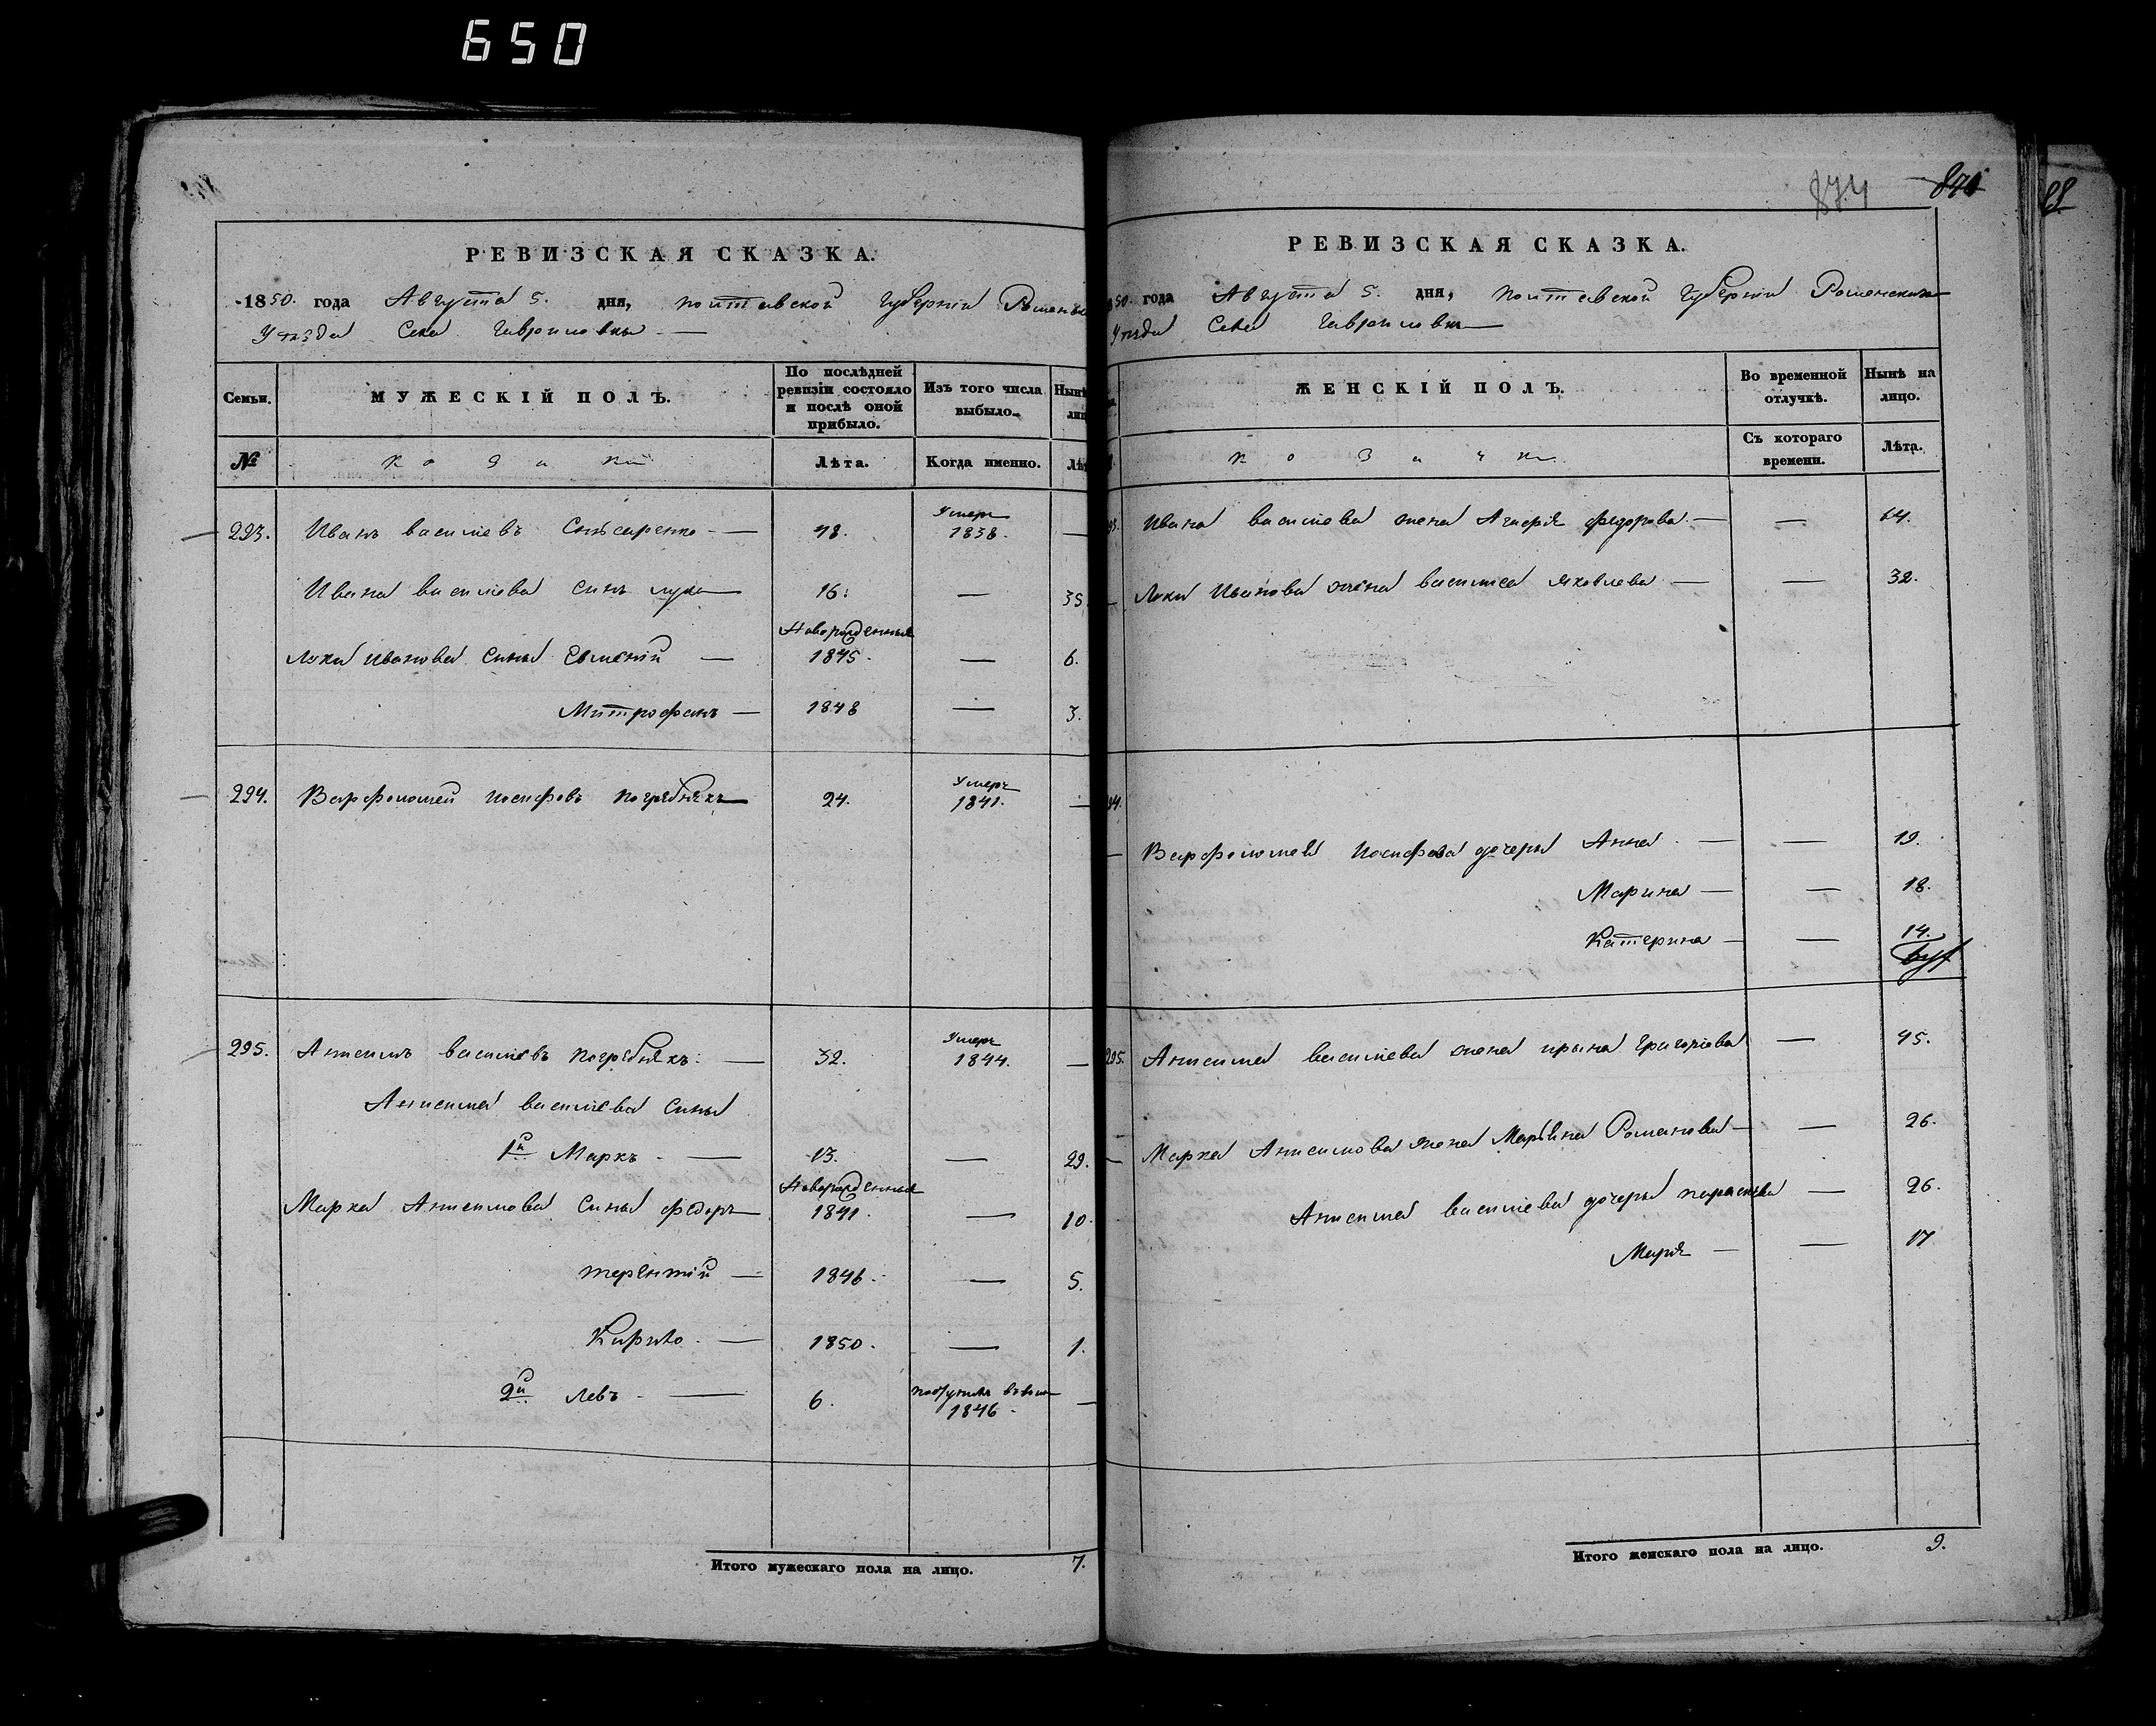 650
РЕВИЗСКАЯ СКАЗКА.
1850. года Августа 5. дня, Полтавской Губерніи Роменска
Уѣзда Села Гавриловки
Семьи. МУЖЕСКІЙ ПОЛЪ. По послѣдней ревизіи состояло и послѣ оной прибыло. Изъ того числа выбыло. Нынѣ
№ Козаки Лѣта. Когда именно.
293. Иванъ Васильевъ Слюсаренко 48. Умеръ 1838.
Ивана Васильева Сынъ Лука 16. 35
Луки Иванова Сыны Евменій Новорожденные 1845. 6.
Митрофанъ 1848 3.
294. Варфоломей Иосифовъ Погрѣбнякъ 24. Умеръ 1841.
295. Антипъ Васильевъ Погрѣбнякъ 32. Умеръ 1844.
Васильева Сыны
1й Маркъ 13. 29.
Марка Сыны Федоръ Новорожденные 1841. 10.
Терентій 1846. 5.
Кирило 1850. 1.
2й Левъ 6. 1846.
Итого мужескаго пола на лицо. 7.
874 88
РЕВИЗСКАЯ СКАЗКА.
50. года Августа 5. дня, Полтавской Губерніи Роменскаго
Уѣзда Села Гавриловки
ЖЕНСКІЙ ПОЛЪ. Во временной отлучкѣ. Нынѣ на лицо.
Козачки Съ котораго времени. Лѣта.
Ивана Васильева жена Агафія Федорова 64.
Луки Иванова жена Василиса Яковлева 32.
Варфоломея Иосифова дочери Анна 19.
Марина 18.
Катерина 14.
295. Васильева жена Ирына Григорьева 45.
Марка жена Романова 26.
Васильева дочери Параскева 26.
Марія 17
Итого женскаго пола на лицо. 9.